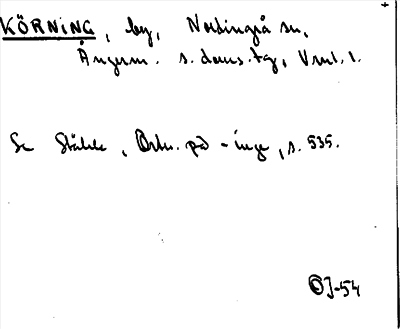 KÖRNING, by, Nordingrå sn,
Ångerm. s. doms. tg, Vnrl. l.
Se Ståhle, Ortn. på -inge, s. 535.
OJ-54